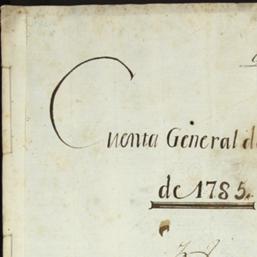 Cuenta General d
de 1785.